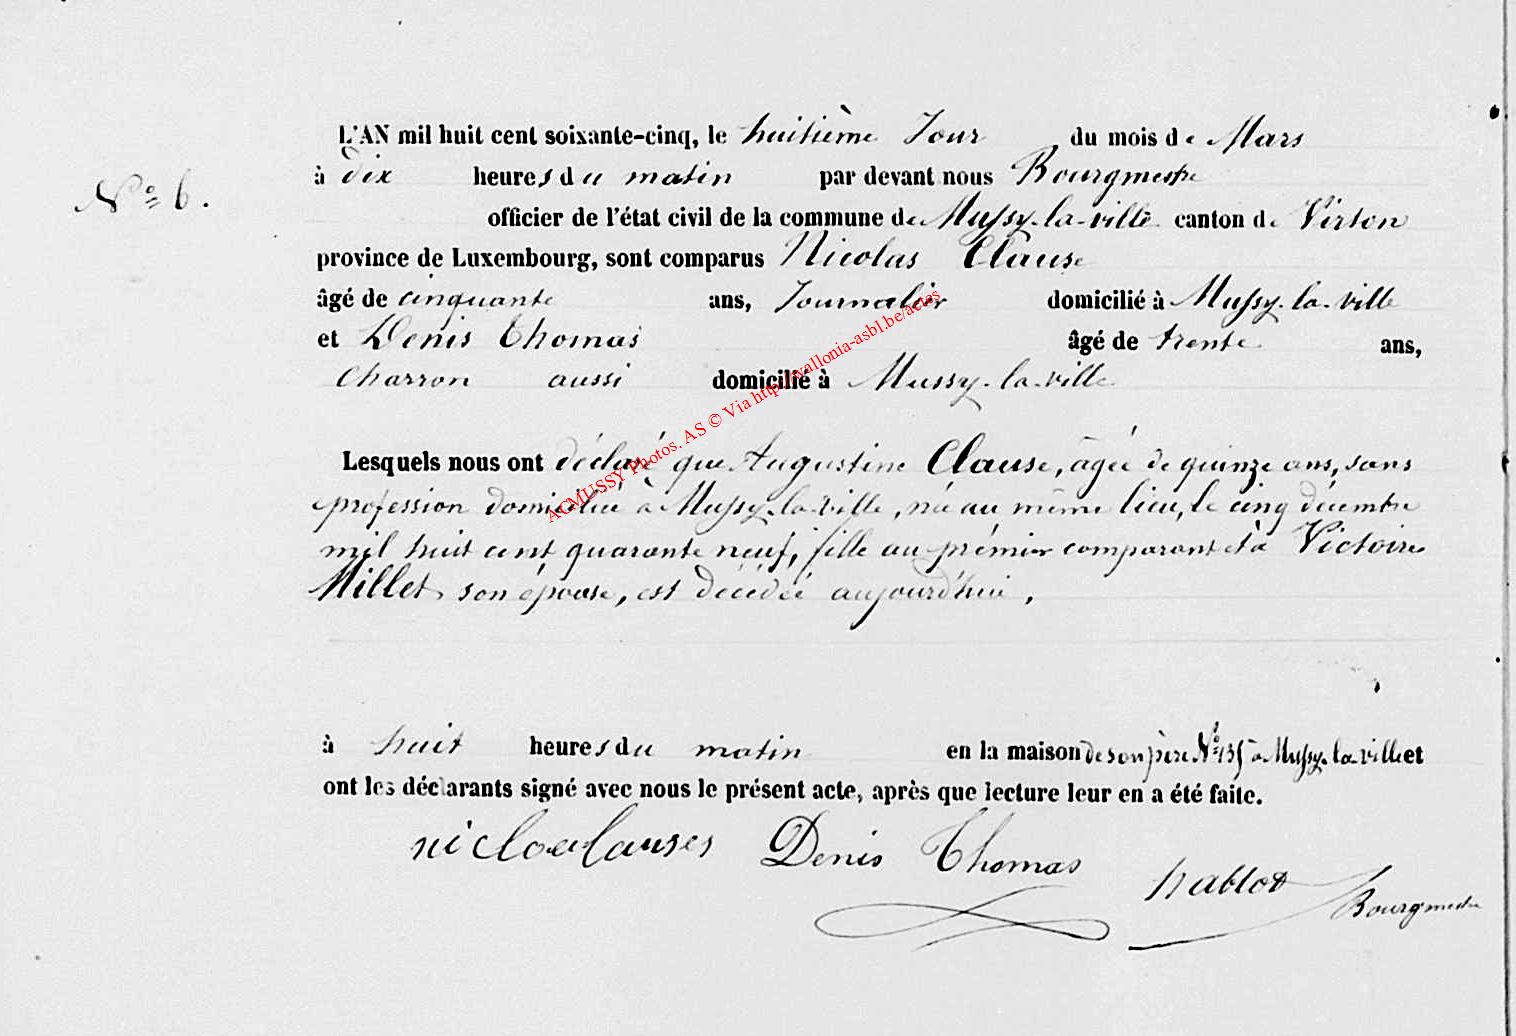 L'AN mil huit cent soixante-cinq, le huitième Jour du mois de Mars
N° 6.
à dix heures du matin par devant nous Bourgmestre
officier de l'état civil de la commune de Mussy-la-ville canton de Virton
province de Luxembourg, sont comparus Nicolas Clause
âgé de cinquante ans, Journalier domicilié à Mussy-la-ville
et Denis Thomas âgé de trente ans,
Charron aussi domicilié à Mussy-la-ville
Lesquels nous ont déclaré que Augustine Clause, âgée de quinze ans, sans
profession domiciliée à Mussy-la-ville, née au même lieu, le cinq décembre
mil huit cent quarante neuf, fille au prémier comparant et à Victoire
Millet son épouse, est décédée aujourd'hui,
à huit heures du matin en la maison de son père N° 135 à Mussy-la-ville et
ont les déclarants signé avec nous le présent acte, après que lecture leur en a été faite.
Denis Thomas
hablot Bourgmestre
ACMUSSY Photos. AS © Via http://wallonia-asbl.be/actes